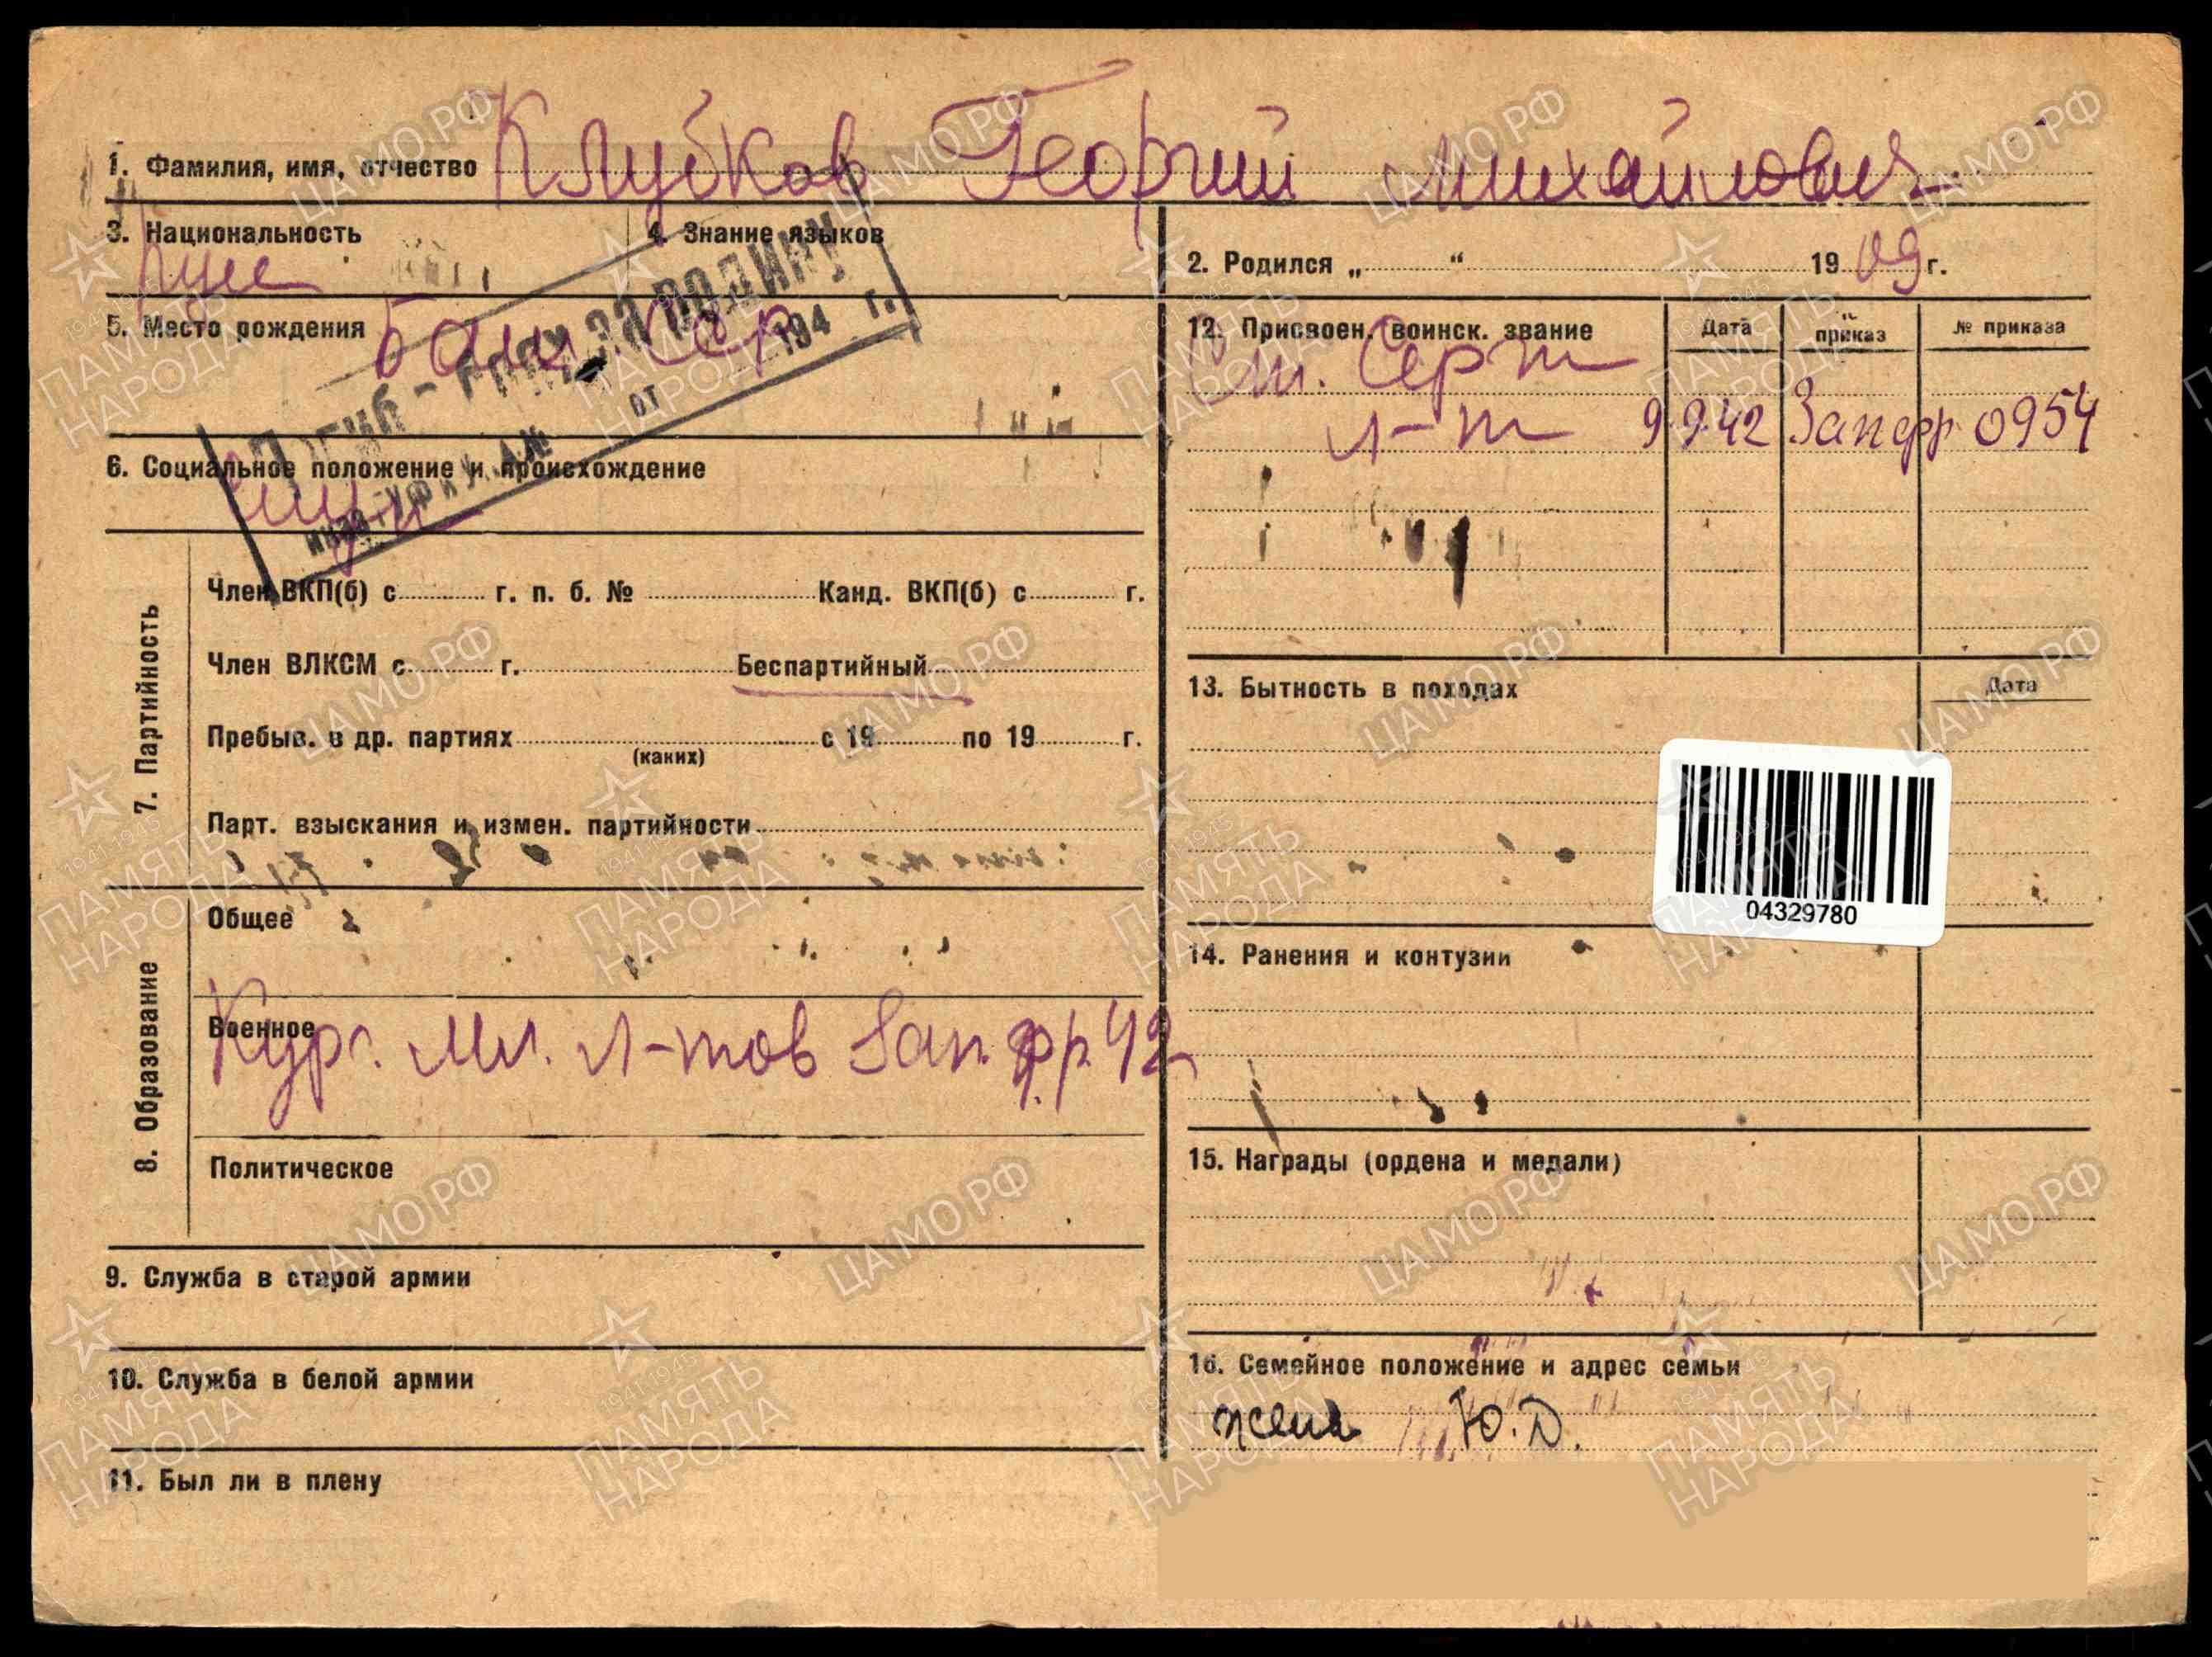 1. Фамилия, имя, отчество Клубков Георгий Михайлович
3. Национальность
Русс
4. Знание языков
2. Родился „ “ 1909 г.
5. Место рождения Баш. ССР
Погиб - в боях за родину
от 194 г.
6. Социальное положение и происхождение
12. Присвоен. воинск. звание Дата приказ № приказа
Ст. Серж-т
л-т 9.9.42 Зап фр 0954
7. Партийность
Член ВКП(б) с г. п. б. № Канд. ВКП(б) с г.
Член ВЛКСМ с г. Беспартийный
Пребыв. в др. партиях с 19 по 19 г.
(каких)
Парт. взыскания и измен. партийности
8. Образование
Общее
Военное
Курс. мл. л-тов Зап. фр. 42
Политическое
9. Служба в старой армии
10. Служба в белой армии
11. Был ли в плену
13. Бытность в походах Дата
04329780
14. Ранения и контузии
15. Награды (ордена и медали)
16. Семейное положение и адрес семьи
жена Ю.Д.
ЦАМО.РФ
1941-1945
ПАМЯТЬ
НАРОДА